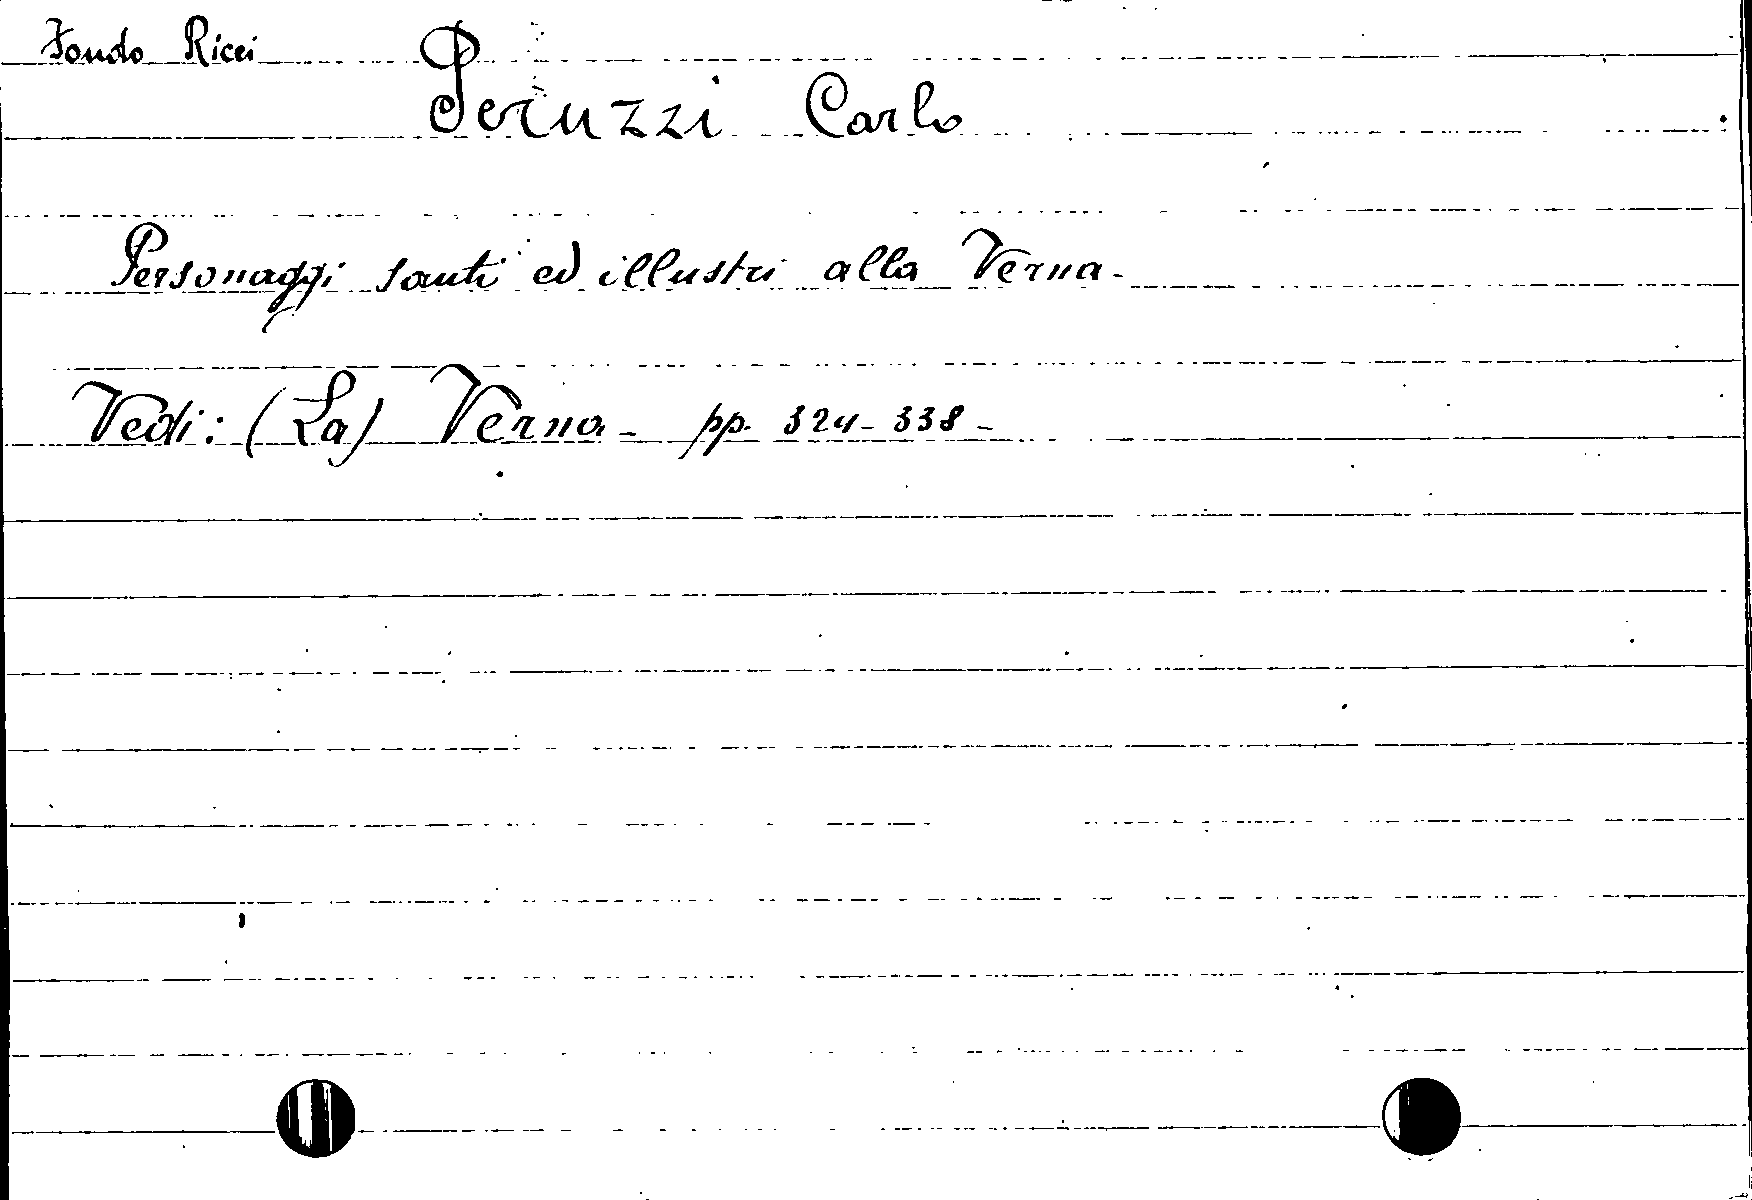 Fondo Ricci
Peruzzi Carlo
Personaggi santi ed illustri alla Verna-
Vedi: (La) Verna - pp. 324-338-